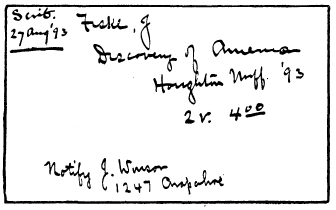 Scrib.
27 Aug '93
Fiske, J
Discovery of America
Houghton Miff. '93
2 v. 4.00
Notify J. Winson
1247 Arapahoe